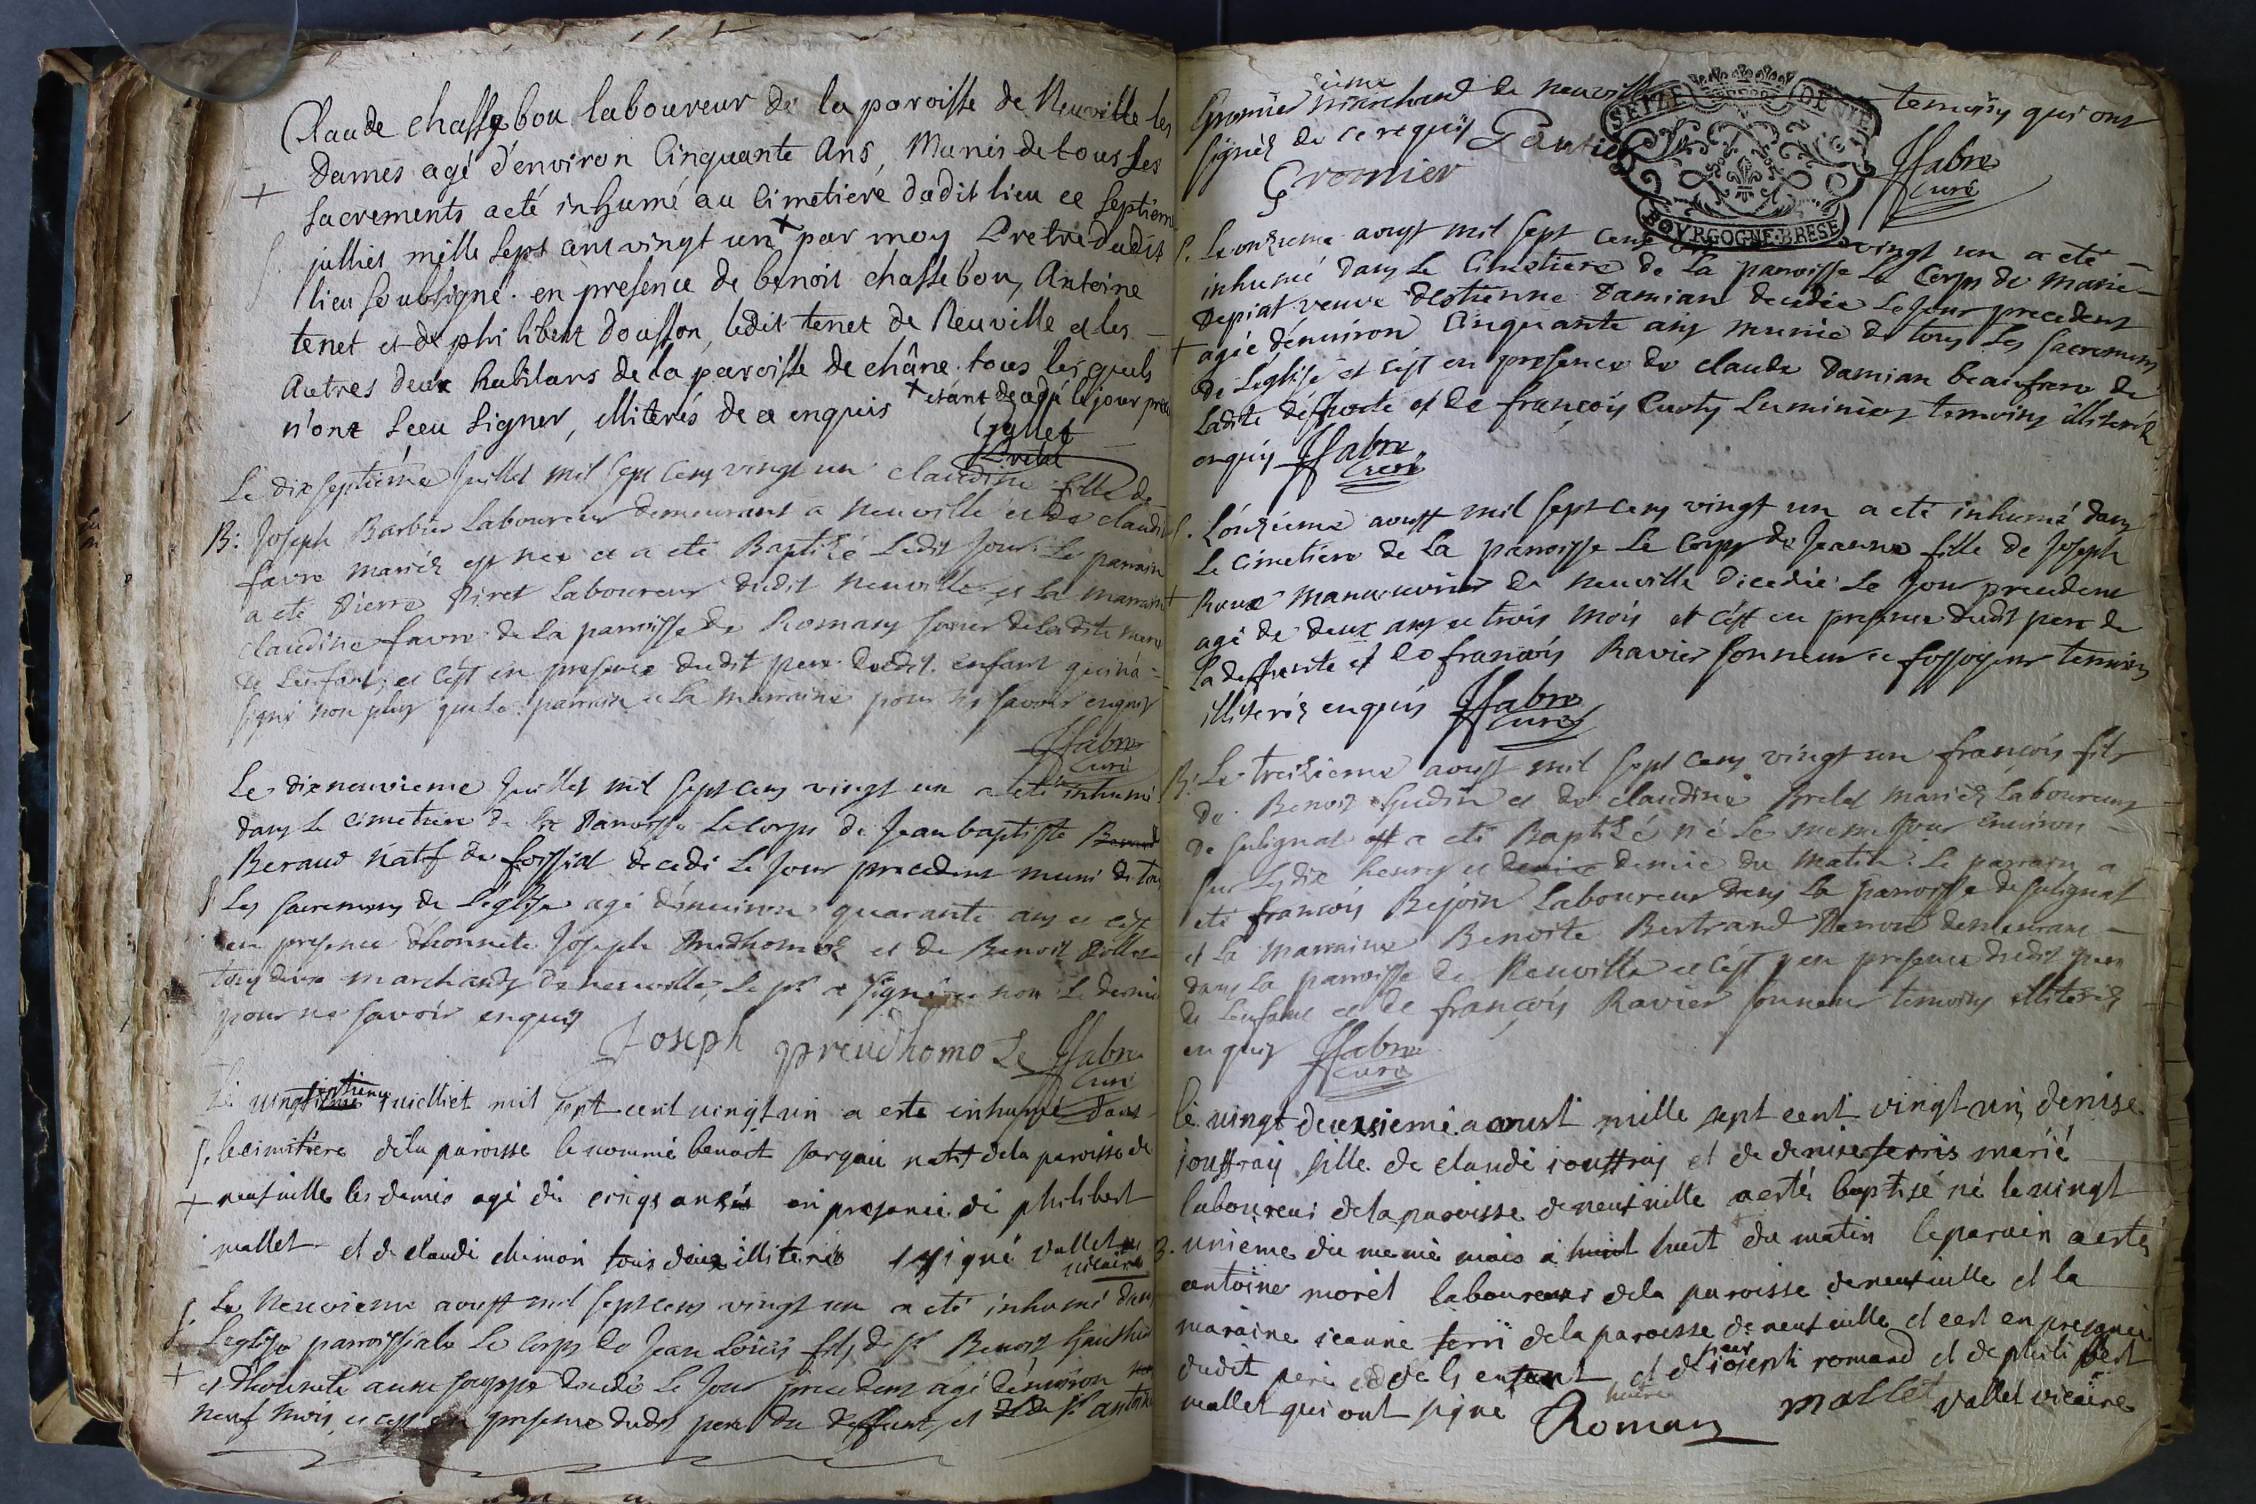 Claude chassebou laboureur de la paroisse de Neuville les
Dames agé d'environ Cinquante Ans, Munis de tous les
+ sacrements a eté inhumé au Cimetiere dudit lieu ce septiem
julliet mille sept cent vingt un + par moy Pretre dudit
lieu soubsigné. en presence de benoit chassebou, Antoine
tenet et de philibert Dousson, ledit tenet de Neuville et les
Autres deux habitans de la paroisse de châne. tous lesquels
n'ont sceu signer, illiterés de ce enquis + etant decedé le jour prece
Gyllet
Pretre
Le dixseptième Juillet mil sept cens vingt un claudine fille de
B: Joseph Barbier Laboureur demeurant a Neuville et de claudine
favre mariéz est nee et a eté Baptizé Ledit jour. Le parrain
a eté Pierre Piret Laboureur dudit Neuville et La marraine
Claudine favre de La parroisse de Romans soeur de ladite mere
de L'enfant; et c'est en presence dudit pere dudit enfant qui n'a
signé non plus que le parrain et La marraine pour ne savoir enquis
Ffabre
Curé
Le dixneuvieme Juillet mil sept cens vingt un a eté inhumé
dans Le cimetiere de La Parroisse Le corps de Jean baptiste
Beraud natif de foissiat decedé Le Jour precedent muni de tous
S Les sacremens de L'église agé d'environ quarante ans et c'est
en presence d'honnete Joseph Prudhomme et de Benoit
tous deux marchands de neuville, Le pr a signé non Le dernier
pour ne savoir enquis
Joseph preudhomo Le Ffabre
Curé
Le vingtieme juilliet mil sept cent vingt un a este inhumé dans
S. le cimitiere de la paroisse le nommé benoit natif de la paroisse de
+ neufville les dames agé de cinqs ans en presence de philibert
mallet et de claude chimon tous deux illiterés signé vallet
vicaire
S. Le Neuvieme aoust mil sept cens vingt un a eté inhumé dans
L'eglise parroissiale Le corps de Jean Loüis fils de Sr Benoit
+ et d'honnete anne decedé Le Jour precedent agé d'environ
neuf mois, et c'est en presence dudit pere du deffunt, et de Sr antoine
Gromier marchand de neuville temoins qui ont
signéz de ce requis
Gromier Ffabre
Curé
S. Le onzieme aoust mil sept cens vingt un a eté
inhumé dans Le Cimetiere de La parroisse Le Corps de Marie
Depiat veuve d'estienne Damian decedée Le Jour precedent
+ agée d'environ Cinquante ans munie de tous Les sacremens
de L'église et c'est en presence de claude Damian beaufrere de
Ladite deffunte et de françois Curty Luminier temoins illiteréz
enquis Ffabre
Curé
S. L'onzieme aoust mil sept cens vingt un a eté inhumé dans
Le cimetiere de La parroisse Le Corps de Jeanne fille de Joseph
+ Roux manoeuvrier de Neuville decedée Le Jour precedent
agé de deux ans et trois mois et c'est en presence dudit pere de
La deffunte et de francois Ravier sonneur et fossoyeur temoins
illiteréz enquis Ffabre
Curé
B: Le treizieme aoust mil sept cens vingt un francois fils
de Benoit Gudin et de claudine Brelet mariéz Laboureurs
de sulignat a eté Baptizé né Le meme Jour environ
sur Les dix heures et demie du matin. Le parrain a
eté francois Bejoin Laboureur dans La parroisse de sulignat
et La Marraine Benoite Bertrand demeurant
dans La parroisse de Neuville et c'est en presence dudit pere
de L'enfant et de francois Ravier sonneur temoins illiteréz
enquis Ffabre
Curé
le vingt deuxsieme aoust mille sept cent vingt un denise
jouffray fille de claude jouffray et de denise ferris marié
laboureur de la paroisse de neufville a esté baptisé né le vingt
B. unieme du meme mois a huit du matin le parain a esté
antoine morel laboureur de la paroisse de neufville et la
maraine jeanne ferri de la paroisse de neufville et cest en presence
dudit pere de lenfant et de sieur joseph romand et de philibert
mallet qui ont signé Roman mallet vallet vicaire
SEIZE DENIE
BOVRGOGNE·BRESE